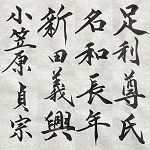 足利尊氏
名和長年
新田義興
小笠原貞宗